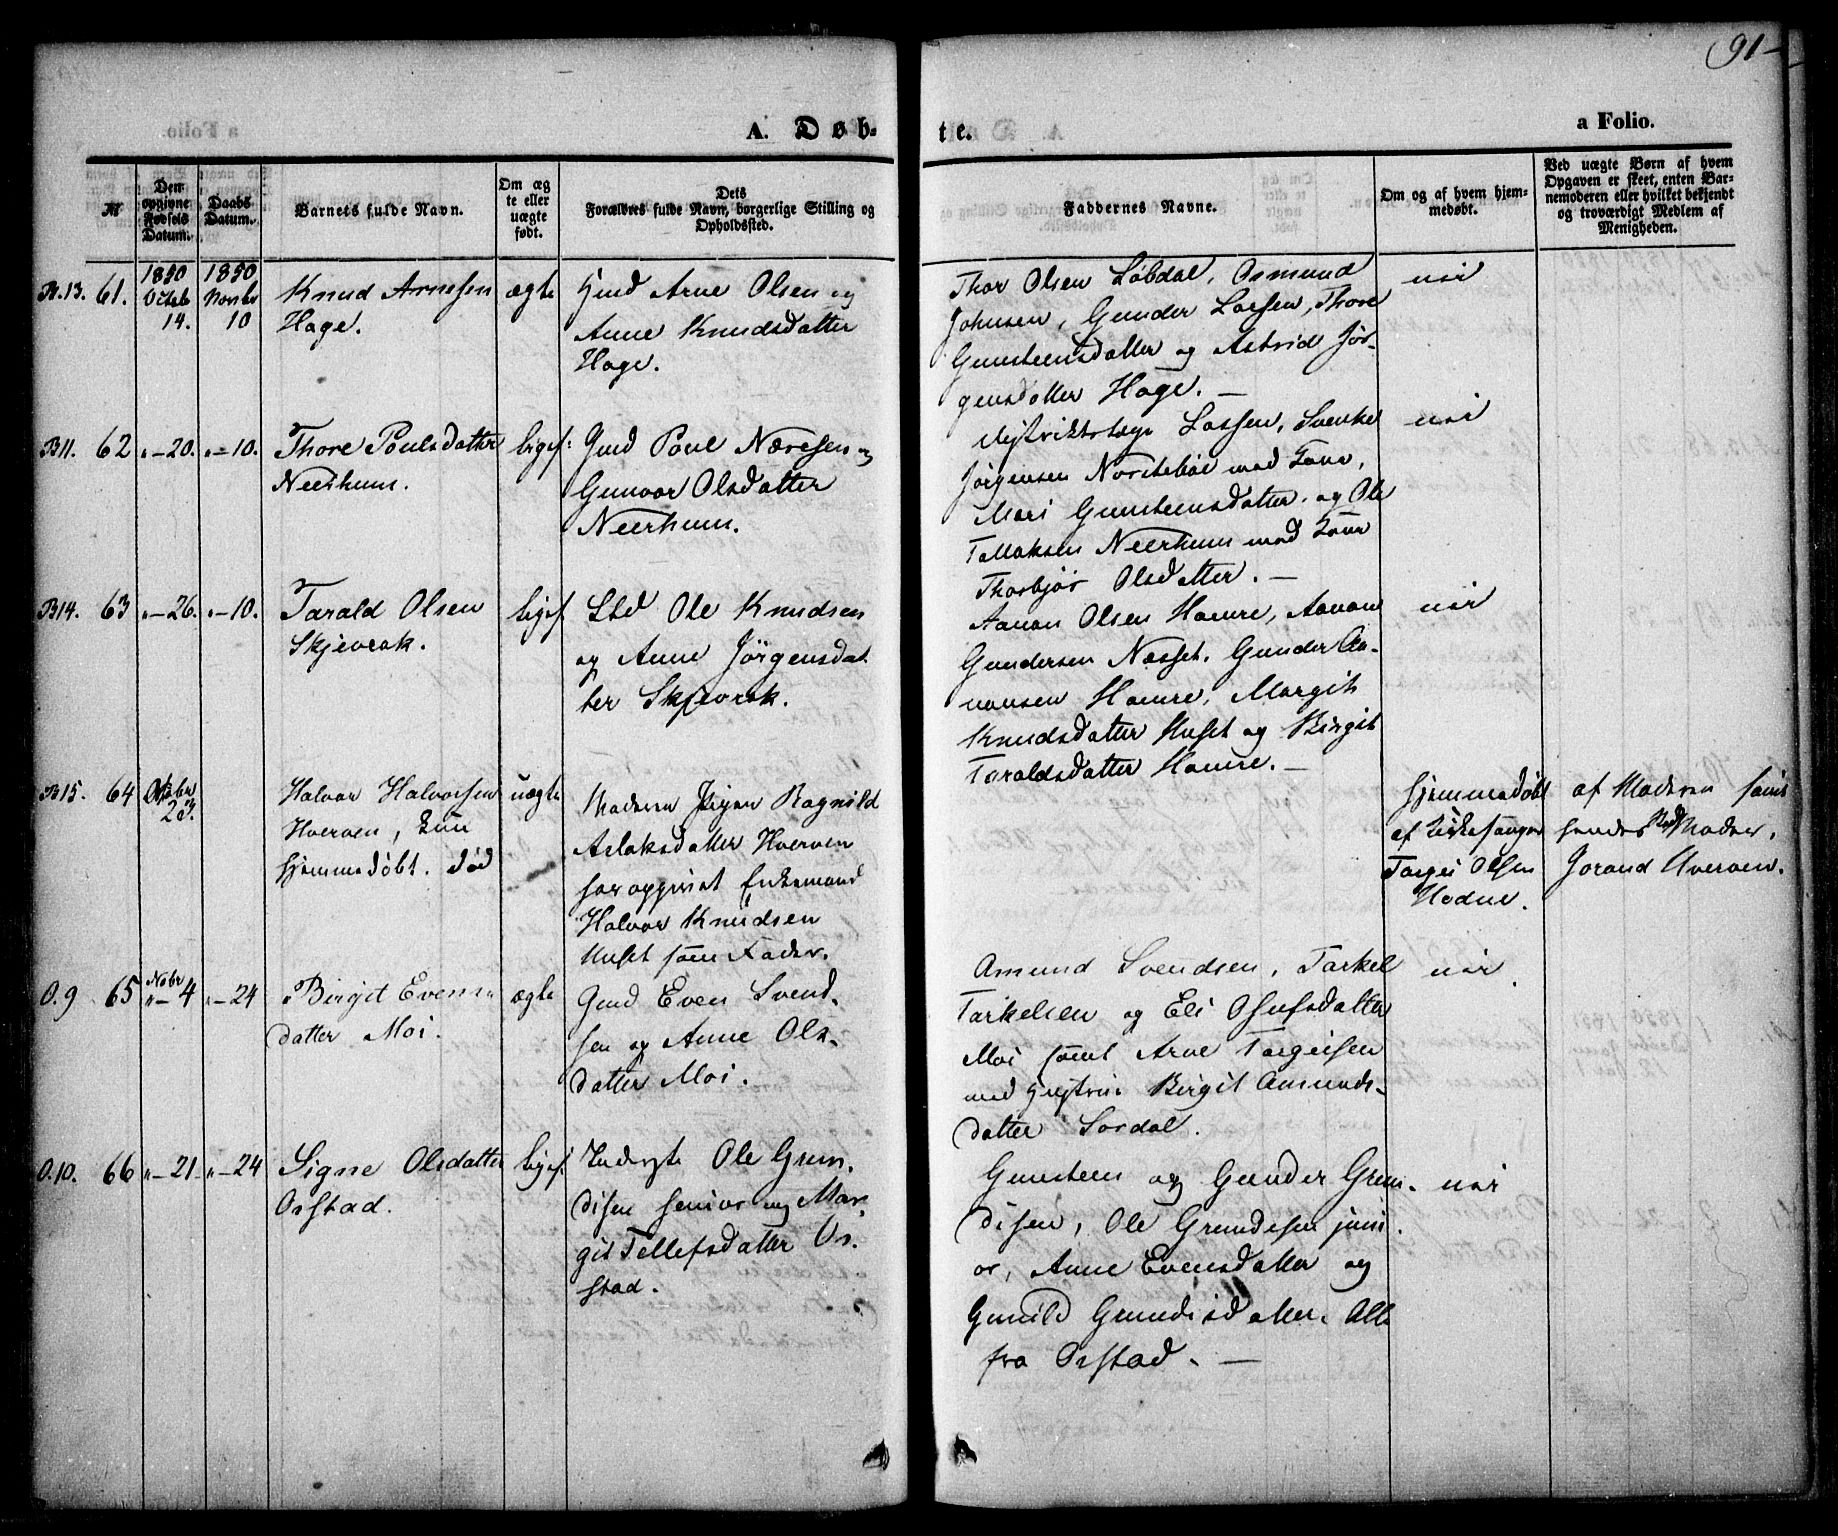 91
A. Døb-
te.
a Folio.
№
Den opgivne Fødsels Datum.
Daabs Datum.
Barnets fulde Navn.
Om ægte eller uægte født.
Dets Forældres fulde Navn, borgerlige Stilling og Opholdssted.
Faddernes Navne.
Om og af hvem hjemmedøbt.
Ved uægte Børn af hvem
Opgaven er skeet, enten Bar-
nemoderen eller hvilket bekjendt
og troværdigt Medlem af
Menigheden.
B.13. 61.
1850
Octob
14.
1850
Novbr
10
Knud Arnesen
Hage.
ægte
Gmd Arne Olsen og
Anne Knudsdatter
Hage.
Thor Olsen Løbdal, Osmund
Johnsen, Gunder Larsen, Thore
Gunsteensdatter og Astrid Jør-
gensdatter Hage. —
nei
B11. 62 "-20. "-10.
Thore Poulsdatter
Neerhum.
liges:
Gmd Poul Næresen og
Gunvor Olsdatter
Neerhum.
Lassen,
Jørgensen med Kone,
Mari Gunsteensdatter. og Ole
Tallaksen Neerhum med Kone
Thorbjør Olsdatter. —
nei
B14. 63 "-26. "-10.
Tarald Olsen
Skjevrak.
ligef
Ole Knudsen
og Anne Jørgensdat
ter Skjevrak.
Aanon Olsen Homre, Aanon
Gundersen Næsset, Gunder Aa-
nonsen Homre, Margit
Knudsdatter Huset og Birgit
Taraldsdatter Homre. —
nei
B15. 64
Octobr
23.
Halvor Halvorsen
Hverven, kun
hjemmedøbt. død
uægte
Moderen Pigen Ragnild
Aslaksdatter Hverven
har opgivet Enkemand
Halvor Knudsen
Huset som Fader.
Hjemmedøbt
af Kirkesanger
Torgei Olsen
Hodne.
af Moderen samt
hendes Moder.
Jorand Hverven.
O.9 65
Nobr
"-4 "-24
Birgit Evens-
datter Moi.
ægte
Gmd Even Svend-
sen og Anne Ols-
datter Moi.
Amund Svendsen, Tarkel
Tarkelsen og Eli Osufsdatter
Moi samt Arne Torgeisen
med Hustru Birgit Asmunds-
datter Sordal.
nei
O.10. 66 "-21- "-24
Signe Olsdatter
Orstad.
ligef.
Ole Grun-
disen senior og Mar-
git Tellefsdatter Or-
stad.
Gunsteen og Gunder Grun-
disen, Ole Grundesen juni-
or, Anne Evensdatter og
Gunild Grundisdatter. Alle
fra Orstad. —
nei